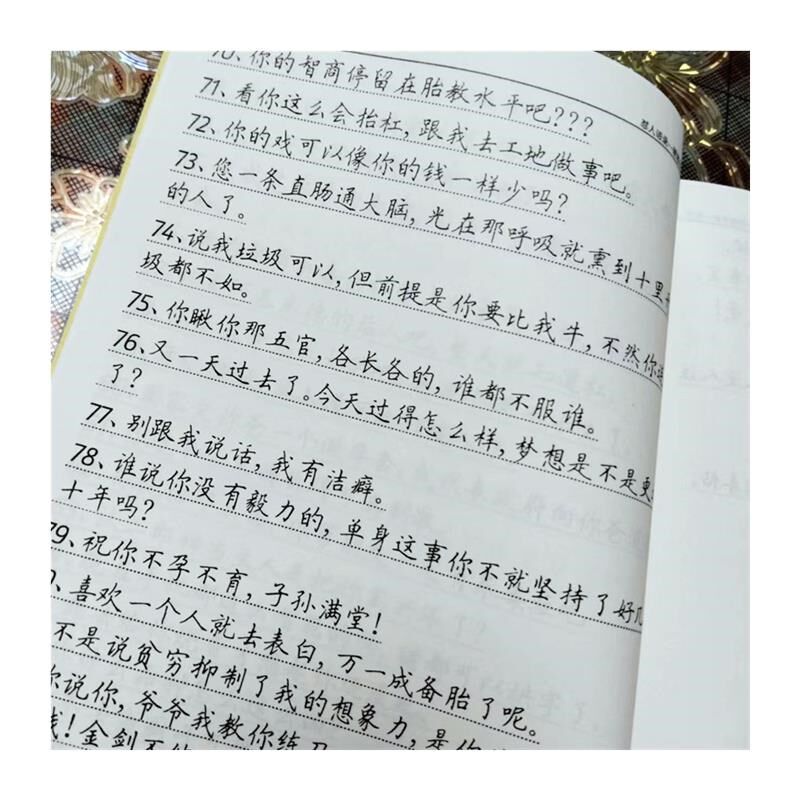 70、你的智商停留在胎教水平吧???
71、看你这么会抬杠,跟我去工地做事吧。
72、你的戏可以像你的钱一样少吗?
73、您一条直肠通大脑,光在那呼吸就熏到十里
的人了。
74、说我垃圾可以,但前提是你要比我牛,不然你连
圾都不如。
75、你瞅你那五官,各长各的,谁都不服谁。
76、又一天过去了。今天过得怎么样,梦想是不是更
了?
77、别跟我说话,我有洁癖。
78、谁说你没有毅力的,单身这事你不就坚持了好几
十年吗?
79、祝你不孕不育,子孙满堂!
、喜欢一个人就去表白,万一成备胎了呢。
不是说贫穷抑制了我的想象力,是你
你说你,爷爷我教你练
!金剑不